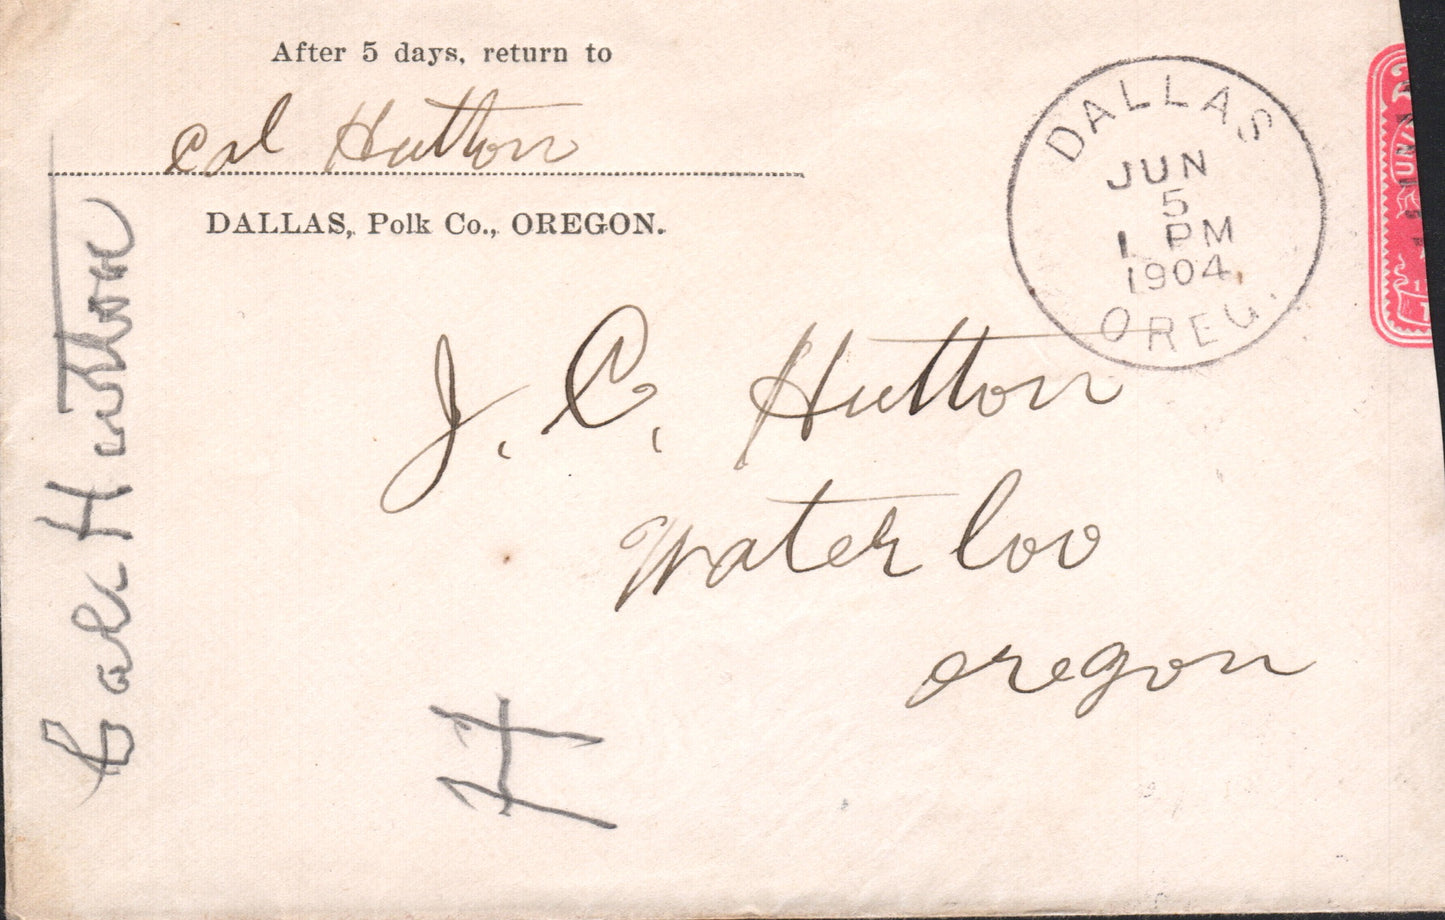 After 5 days, return to
Cal Hutton
DALLAS, Polk Co., OREGON.
DALLAS
JUN
5
1 PM
1904
OREG.
J. C. Hutton
Waterloo
Oregon
Hutton
H